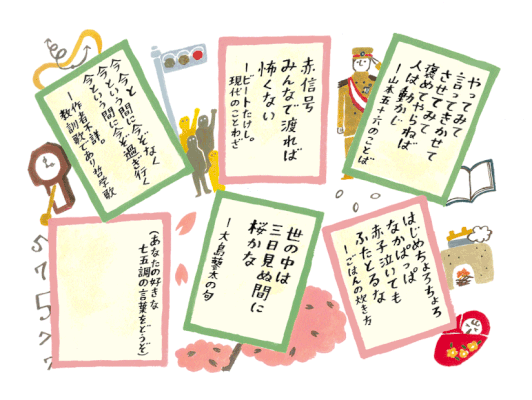 やってみて
言ってきかせて
させてみて
褒めてやらねば
人は動かじ
ー山本五十六のことば
赤信号
みんなで渡れば
怖くない
ービートたけし。
現代のことわざ
今今と
今という間に今ぞなく
今という間に今ぞ過ぎ行く
ー作者不詳。
教訓歌であり哲学歌
はじめちょろちょろ
なかぱっぱ
赤子泣いても
ふたとるな
ーごはんの炊き方
世の中は
三日見ぬ間に
桜かな
ー大島蓼太の句
(あなたの好きな
七五調の言葉をどうぞ)
5
7
5
7
7